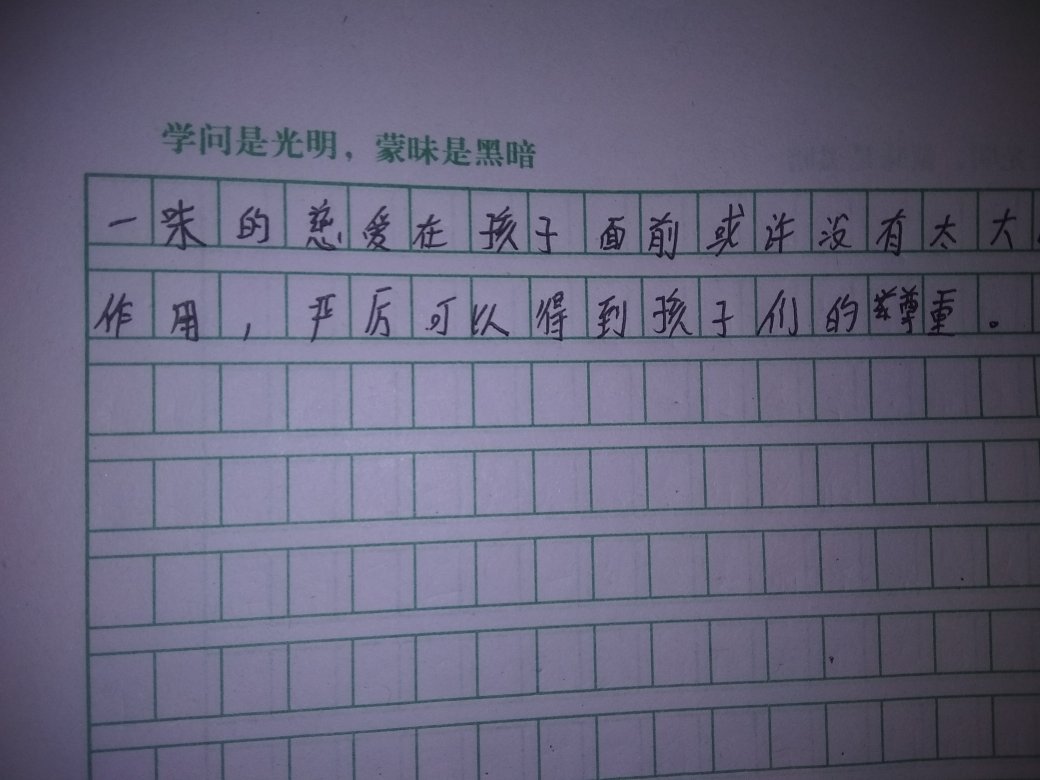 学问是光明，蒙昧是黑暗
一味的慈爱在孩子面前或许没有太大
作用，严厉可以得到孩子们的尊重。